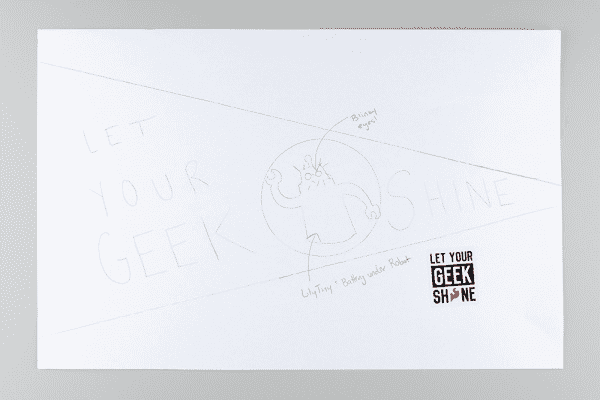 LET
YOUR
GEEK
SHINE
Blinky
eyes!
LilyTiny + Battery under Robot
LET YOUR
GEEK
SH NE